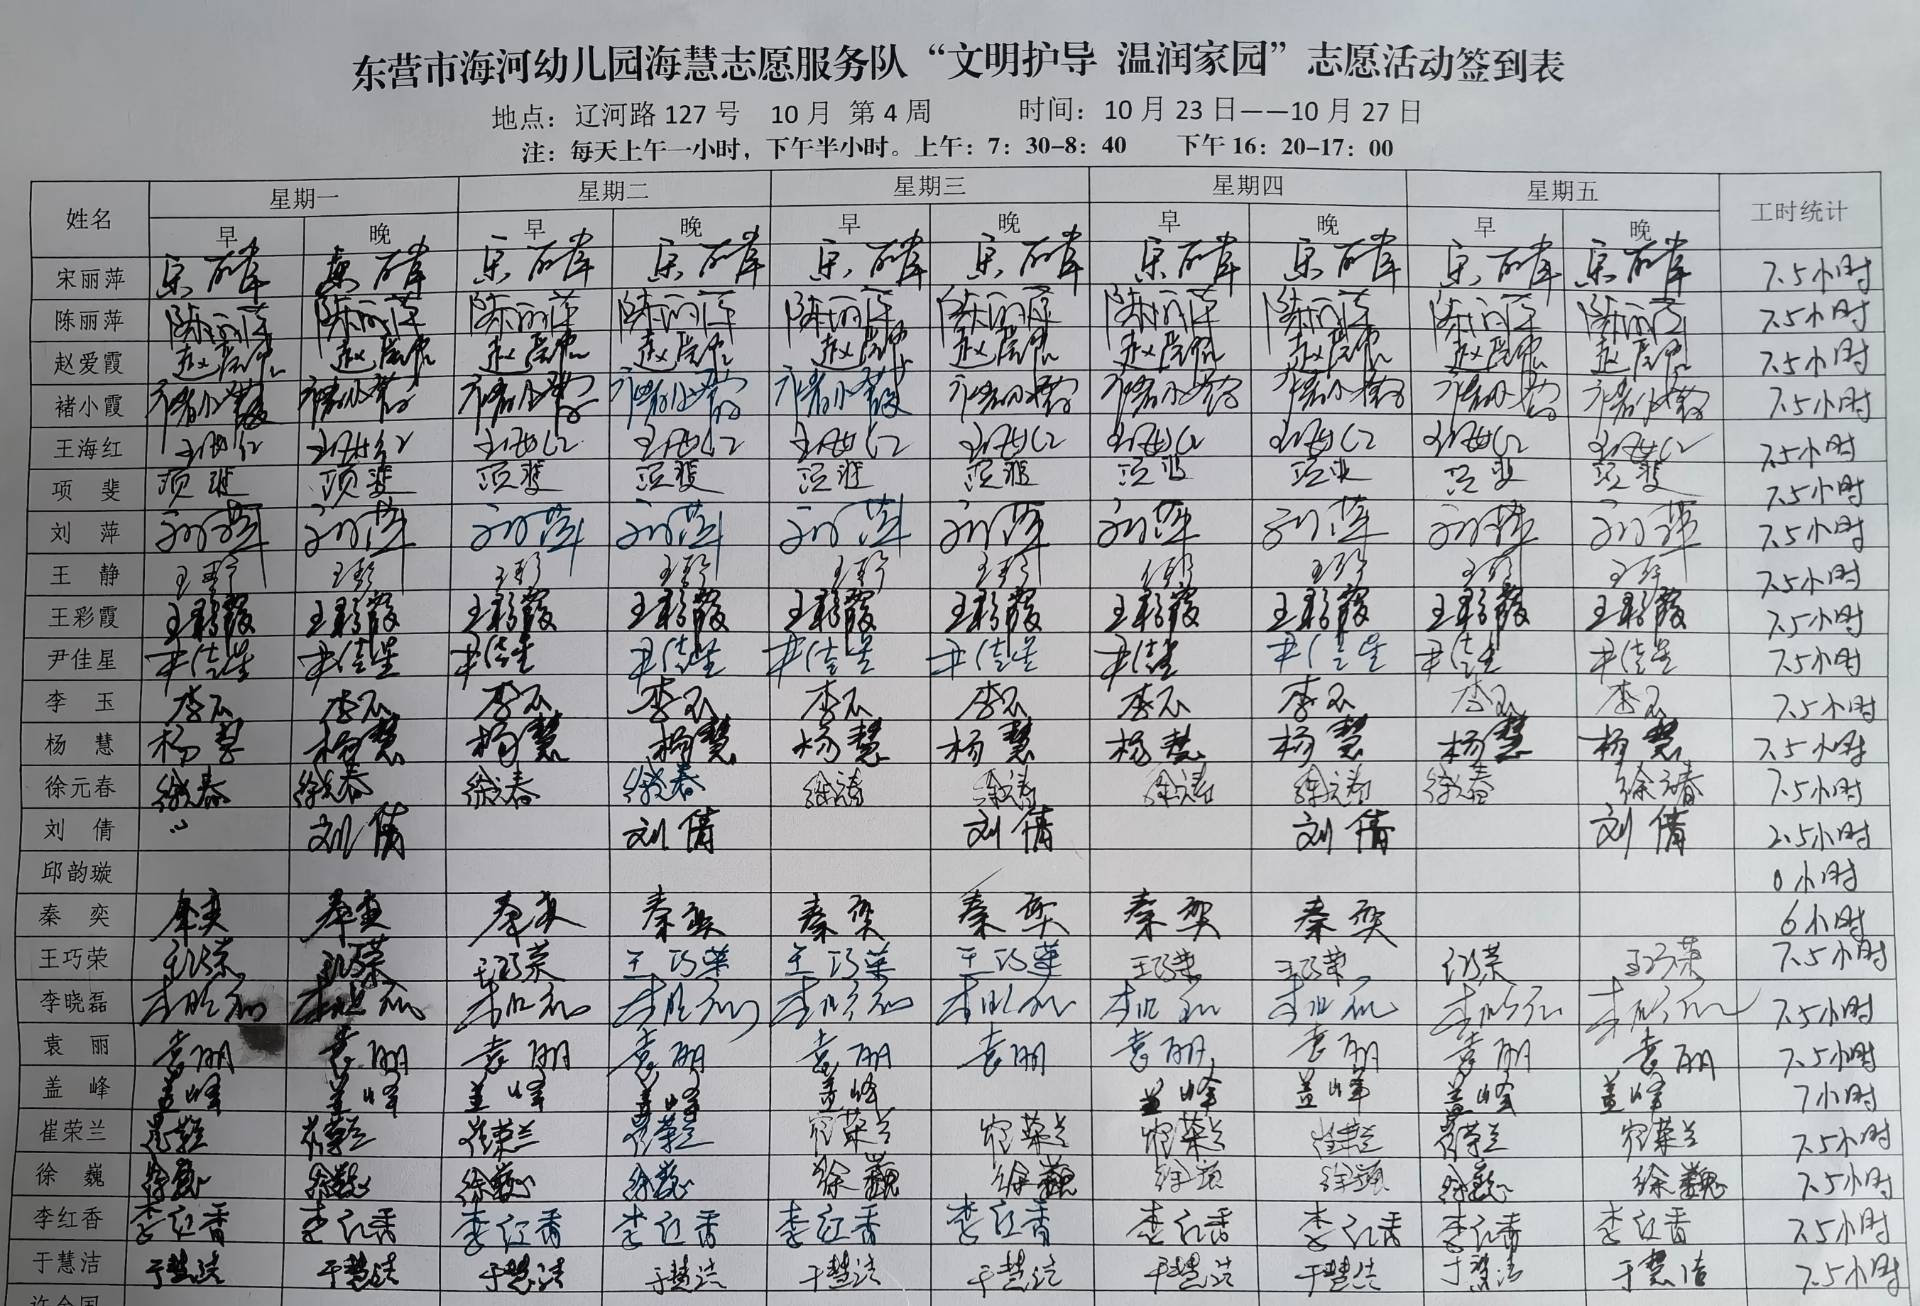 东营市海河幼儿园海慧志愿服务队“文明护导 温润家园”志愿活动签到表
地点：辽河路 127 号 10 月 第 4 周 时间：10 月 23 日——10 月 27 日
注：每天上午一小时，下午半小时。上午：7：30-8：40 下午 16：20-17：00
姓名 星期一 星期二 星期三 星期四 星期五 工时统计
早 晚 早 晚 早 晚 早 晚 早 晚
宋丽萍 7.5小时
陈丽萍 陈丽萍 陈丽萍 陈丽萍 陈丽萍 陈丽萍 陈丽萍 陈丽萍 陈丽萍 陈丽萍 陈丽萍 7.5小时
赵爱霞 7.5小时
褚小霞 褚小霞 褚小霞 褚小霞 褚小霞 褚小霞 褚小霞 褚小霞 褚小霞 褚小霞 褚小霞 7.5小时
王海红 王海红 王海红 王海红 王海红 王海红 王海红 王海红 王海红 王海红 王海红 7.5小时
项斐 项斐 项斐 项斐 项斐 项斐 项斐 项斐 项斐 项斐 项斐 7.5小时
刘萍 刘萍 刘萍 刘萍 刘萍 刘萍 刘萍 刘萍 刘萍 刘萍 刘萍 7.5小时
王静 7.5小时
王彩霞 王彩霞 王彩霞 王彩霞 王彩霞 王彩霞 王彩霞 王彩霞 王彩霞 王彩霞 王彩霞 7.5小时
尹佳星 尹佳星 尹佳星 尹佳星 尹佳星 尹佳星 尹佳星 尹佳星 尹佳星 尹佳星 尹佳星 7.5小时
李玉 李玉 李玉 李玉 李玉 李玉 李玉 李玉 李玉 李玉 李玉 7.5小时
杨慧 杨慧 杨慧 杨慧 杨慧 杨慧 杨慧 杨慧 杨慧 杨慧 杨慧 7.5小时
徐元春 徐元春 徐元春 徐元春 徐元春 徐元春 徐元春 徐元春 徐元春 徐元春 徐元春 7.5小时
刘倩 刘倩 刘倩 刘倩 刘倩 刘倩 2.5小时
邱韵璇 0小时
秦奕 秦奕 秦奕 秦奕 秦奕 秦奕 秦奕 秦奕 秦奕 6小时
王巧荣 王巧荣 王巧荣 王巧荣 王巧荣 王巧荣 王巧荣 王巧荣 王巧荣 王巧荣 王巧荣 7.5小时
李晓磊 李晓磊 李晓磊 李晓磊 李晓磊 李晓磊 李晓磊 李晓磊 李晓磊 李晓磊 李晓磊 7.5小时
袁丽 袁丽 袁丽 袁丽 袁丽 袁丽 袁丽 袁丽 袁丽 袁丽 袁丽 7.5小时
盖峰 盖峰 盖峰 盖峰 盖峰 盖峰 盖峰 盖峰 盖峰 盖峰 7小时
崔荣兰 崔荣兰 崔荣兰 崔荣兰 崔荣兰 崔荣兰 崔荣兰 崔荣兰 崔荣兰 崔荣兰 崔荣兰 7.5小时
徐巍 徐巍 徐巍 徐巍 徐巍 徐巍 徐巍 徐巍 徐巍 徐巍 徐巍 7.5小时
李红香 李红香 李红香 李红香 李红香 李红香 李红香 李红香 李红香 李红香 李红香 7.5小时
于慧洁 于慧洁 于慧洁 于慧洁 于慧洁 于慧洁 于慧洁 于慧洁 于慧洁 于慧洁 于慧洁 7.5小时